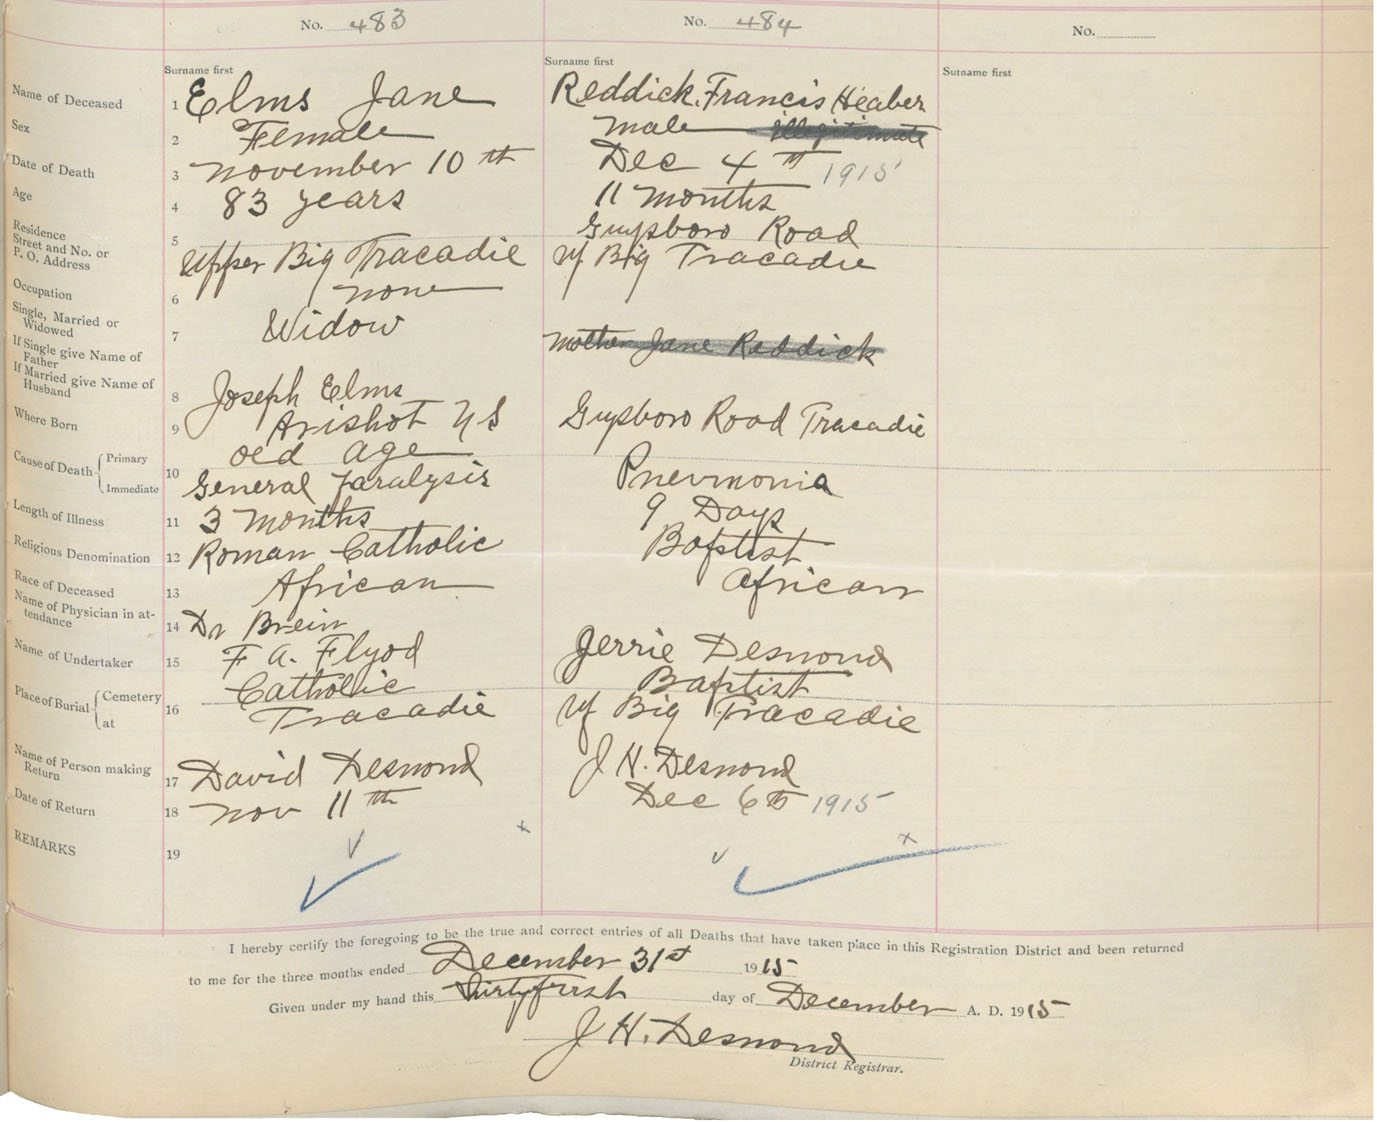 No. 483
No. 484
No.
Surname first
Surname first
Surname first
Name of Deceased 1 Elms Jane
Reddick, Francis Heaber
Sex 2 Female
male illegitimate
Date of Death 3 november 10th
Dec 4th 1915
Age 4 83 years
11 months
Residence
Street and No. or
P. O. Address
5 Upper Big Tracadie
Guysboro Road
Up Big Tracadie
Occupation 6 none
Single, Married or
Widowed
7 Widow
If Single give Name of
Father
If Married give Name of
Husband
8 Joseph Elms
mother Jane Reddick
Where Born 9 Arishot NS
Guysboro Road Tracadie
Cause of Death Primary
Immediate
10 old age
General Paralysis
Pneumonia
Length of Illness 11 3 months
9 Days
Religious Denomination 12 Roman Catholic
Baptist
Race of Deceased 13 African
African
Name of Physician in at-
tendance
14 Dr
Name of Undertaker 15 F A. Flyod
Jerrie Desmond
Place of Burial Cemetery
at
16 Catholic
Tracadie
Baptist
Up Big Tracadie
Name of Person making
Return
17 David Desmond
J H. Desmond
Date of Return 18 nov 11th
Dec 6th 1915
REMARKS 19
I hereby certify the foregoing to be the true and correct entries of all Deaths that have taken place in this Registration District and been returned
to me for the three months ended December 31st 1915
Given under my hand this thirtyfirst day of December A. D. 1915
J H. Desmond
District Registrar.